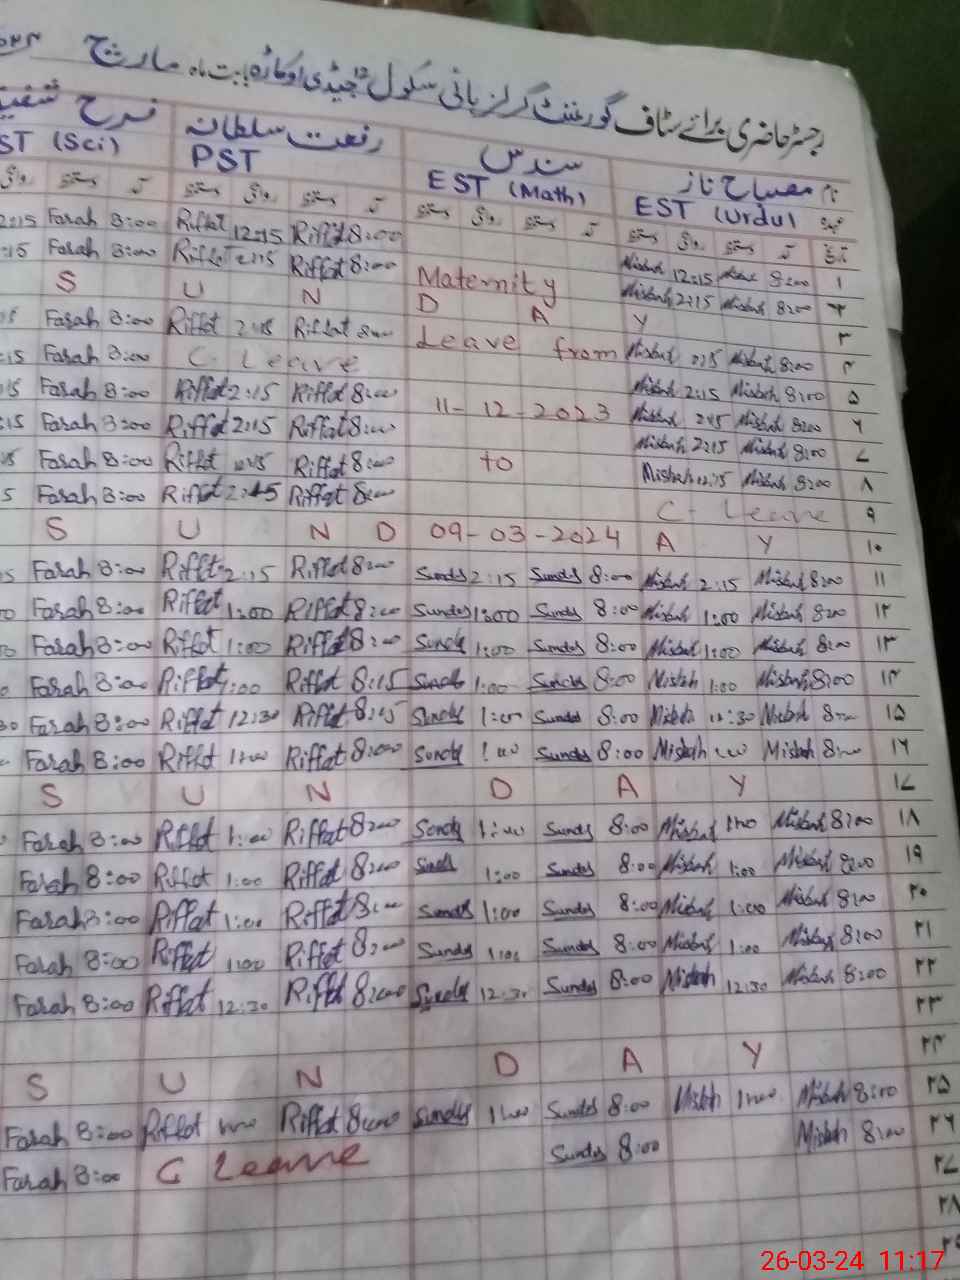 رجسٹر حاضری برائے سٹاف گورنمنٹ گرلز ہائی سکول جیڈی اوکاڑہ بابت ماہ مارچ
نام مصباح ناز سندس رفعت سلطانہ فرح
EST (Urdu) EST (Math) PST ST (Sci)
تاریخ آمد دستخط روانگی دستخط آمد دستخط روانگی دستخط آمد دستخط روانگی دستخط آمد دستخط روانگی
2:15 Farah 8:00 Riffat 12:15 Riffat 8:00 Misbah 12:15 Misbah 8:00 ۱
:15 Farah 8:00 Riffat 2:15 Riffat 8:00 Maternity Misbah 2:15 Misbah 8:00 ۲
S U N D A Y ۳
Farah 8:00 Riffat 2:15 Riffat 8:00 Leave from Misbah 2:15 Misbah 8:00 ۴
:15 Farah 8:00 C. Leave Misbah 2:15 Misbah 8:00 ۵
:15 Farah 8:00 Riffat 2:15 Riffat 8:00 11-12-2023 Misbah 2:15 Misbah 8:00 ۶
:15 Farah 8:00 Riffat 2:15 Riffat 8:00 Misbah 2:15 Misbah 8:00 ۷
Farah 8:00 Riffat Riffat 8:00 to Misbah 12:15 Misbah 8:00 ۸
5 Farah 8:00 Riffat 2:15 Riffat 8:00 C. Leave ۹
S U N D 09-03-2024 A Y ۱۰
Farah 8:00 Riffat 2:15 Riffat 8:00 Sundas 2:15 Sundas 8:00 Misbah 2:15 Misbah 8:00 ۱۱
Farah 8:00 Riffat 1:00 Riffat 8:00 Sundas 1:00 Sundas 8:00 Misbah 1:00 Misbah 8:00 ۱۲
Farah 8:00 Riffat 1:00 Riffat 8:00 Sundas 1:00 Sundas 8:00 Misbah 1:00 Misbah 8:00 ۱۳
Farah 8:00 Riffat 1:00 Riffat 8:15 Sundas 1:00 Sundas 8:00 Misbah 1:00 Misbah 8:00 ۱۴
30 Farah 8:00 Riffat 12:30 Riffat 8:15 Sundas 1:00 Sundas 8:00 Misbah 12:30 Misbah 8:00 ۱۵
Farah 8:00 Riffat 1:00 Riffat 8:00 Sundas 1:00 Sundas 8:00 Misbah 1:00 Misbah 8:00 ۱۶
S U N D A Y ۱۷
Farah 8:00 Riffat 1:00 Riffat 8:00 Sundas 1:00 Sundas 8:00 Misbah 1:00 Misbah 8:00 ۱۸
Farah 8:00 Riffat 1:00 Riffat 8:00 Sundas 1:00 Sundas 8:00 Misbah 1:00 Misbah 8:00 ۱۹
Farah 8:00 Riffat 1:00 Riffat 8:00 Sundas 1:00 Sundas 8:00 Misbah 1:00 Misbah 8:00 ۲۰
Farah 8:00 Riffat 1:00 Riffat 8:00 Sundas 1:00 Sundas 8:00 Misbah 1:00 Misbah 8:00 ۲۱
Farah 8:00 Riffat 12:30 Riffat 8:00 Sundas 12:30 Sundas 8:00 Misbah 12:30 Misbah 8:00 ۲۲
۲۳
S U N D A Y ۲۴
Farah 8:00 Riffat 1:00 Riffat 8:00 Sundas 1:00 Sundas 8:00 Misbah 1:00 Misbah 8:00 ۲۵
Farah 8:00 C Leave Sundas 8:00 Misbah 8:00 ۲۶
۲۷
۲۸
26-03-24 11:17